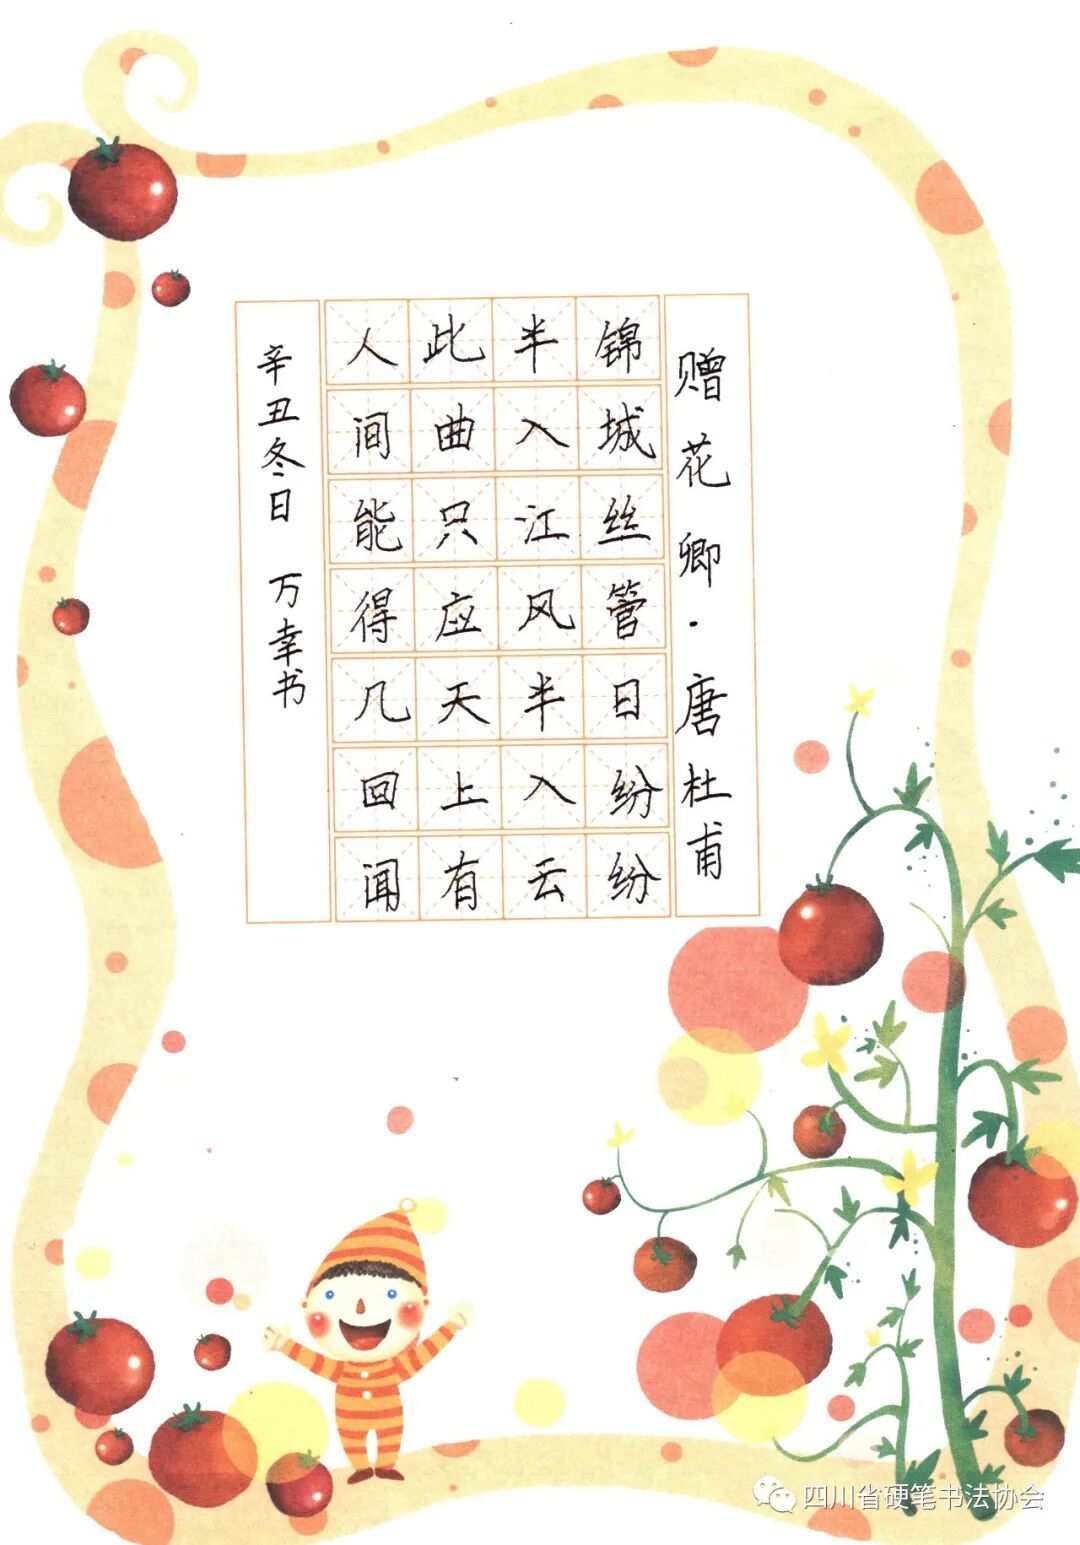 赠花卿·唐杜甫
锦城丝管日纷纷
半入江风半入云
此曲只应天上有
人间能得几回闻
辛丑冬日 万幸书
四川省硬笔书法协会